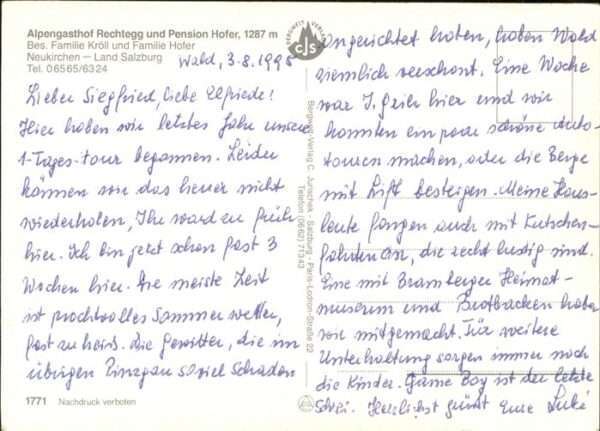 Alpengasthof Rechtegg und Pension Hofer, 1287 m
Bes. Familie Kröll und Familie Hofer
Neukirchen — Land Salzburg
Tel. 0 65 65/63 24
Wald, 3.8.1995
Lieber Siegfried, liebe Elfriede!
Hier haben wir letztes Jahr unsere
1-Tages-tour begonnen. Leider
können wir das heuer nicht
wiederholen, Ihr ward zu früh
hier. Ich bin jetzt schon fast 3
Wochen hier. Die meiste Zeit
ist prachtvolles Sommerwetter,
fast zu heiß. Die Gewitter, die im
übrigen Pinzgau soviel Schaden
1771 Nachdruck verboten
BERGWELT VERLAG
CJS
Bergwelt-Verlag C. Jurischek - Salzburg - Paris-Lodron-Straße 23
Telefon (0662) 71343
angerichtet haben, haben Wald
ziemlich verschont. Eine Woche
war hier und wir
konnten ein paar schöne Auto-
touren machen, oder die Berge
mit Lift besteigen. Meine Haus-
leute fangen auch mit Kutschen-
fahrten an, die recht lustig sind.
Eine mit Bramberger Heimat-
museum und Brotbacken haben
wir mitgemacht. Für weitere
Unterhaltung sorgen immer noch
die Kinder. Game Boy ist der letzte
Schrei. Herzlichst grüßt Eure